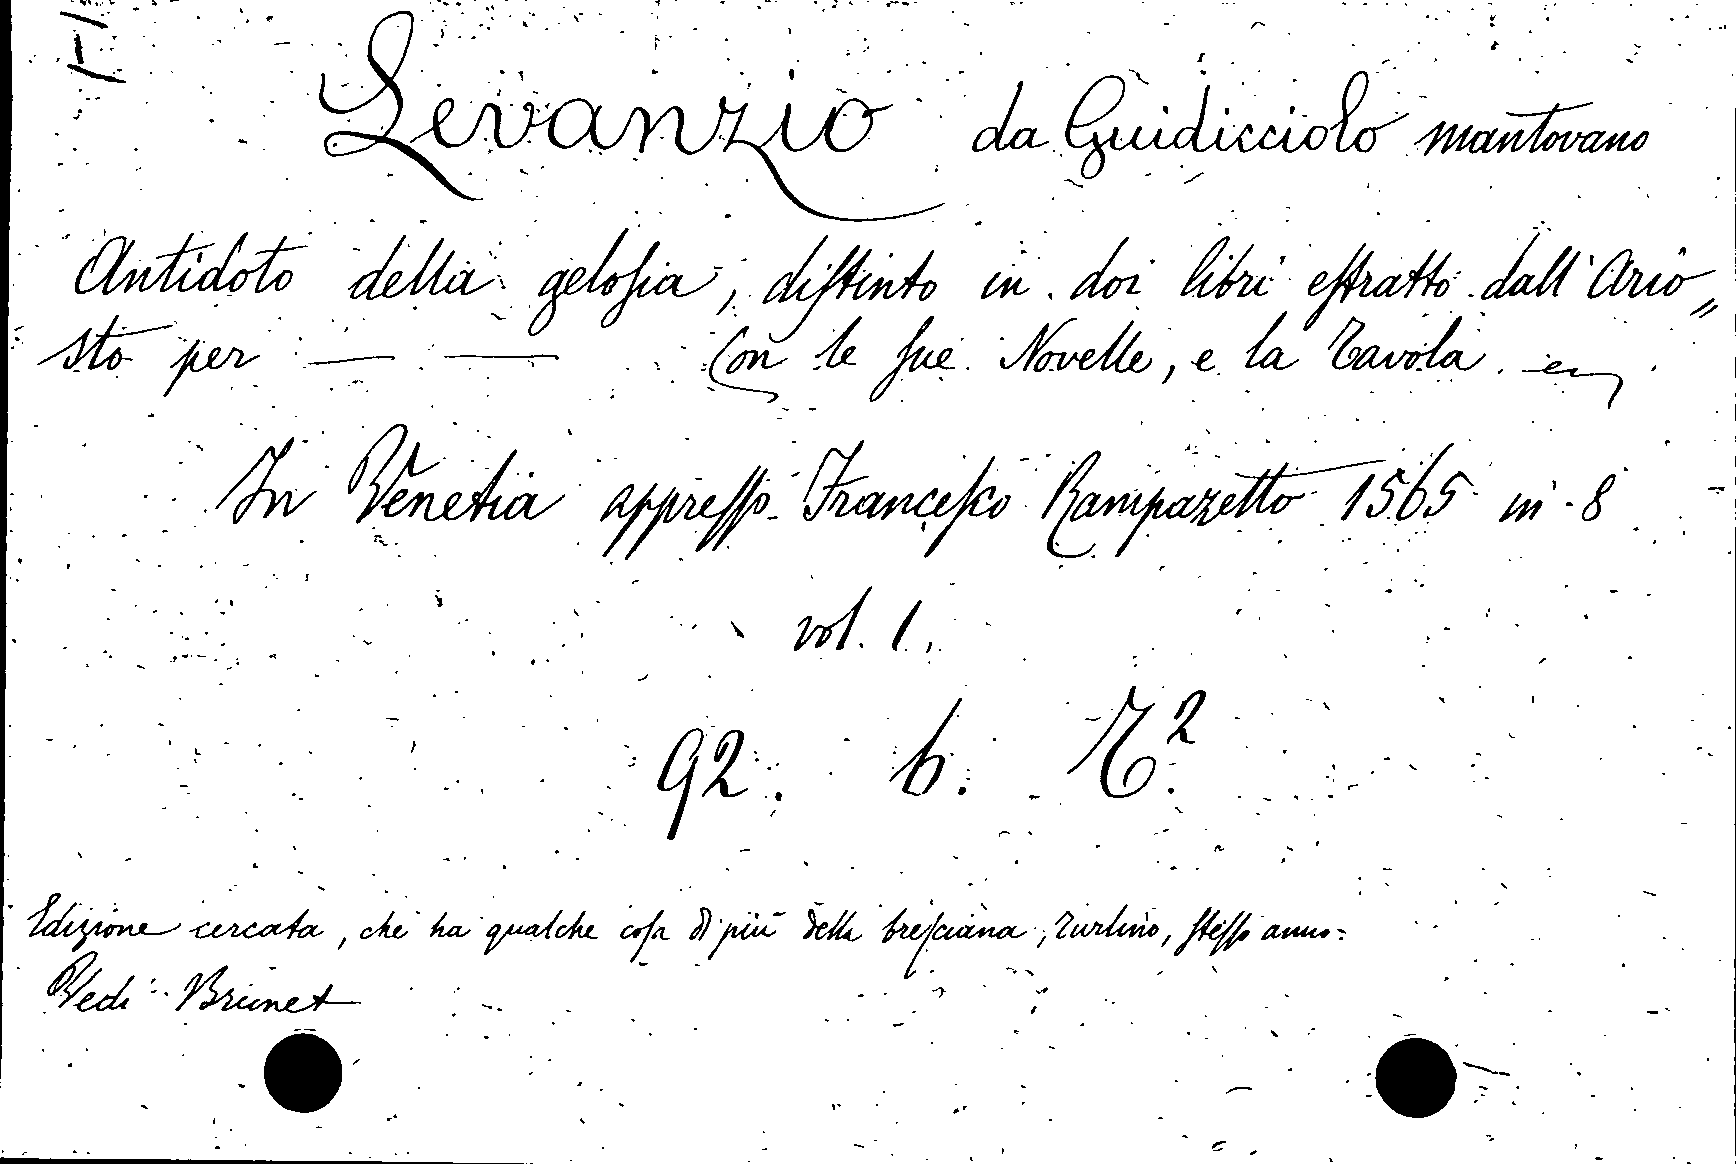 Levanzio da Guidicciolo mantovano
Antidoto della geloſia, diſtinto in doi libri eſtratto dall' Ario„
sto per — — Con le ſue Novelle, e la Tavola.
In Venetia appreſſo Franceſco Rampazetto 1565 in 8
vol. 1.
92. b. T².
Edizione cercata, che ha qualche coſa di più della breſciana, Turlino, steſſo anno.
Vedi Brunet